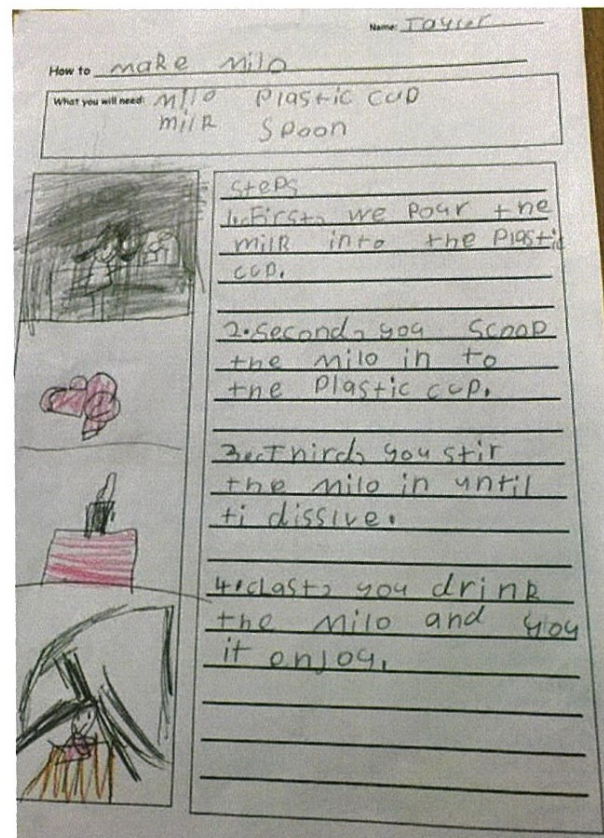 Name: Taylor
How to make milo
What you will need: milo Plastic cup
milk Spoon
steps
1. First, we pour the
milk into the plastic
cup.
2. second, you scoop
the milo in to
the plastic cup.
3. Third, you stir
the milo in until
ti dissive.
4. Last, you drink
the milo and you
it enjoy.